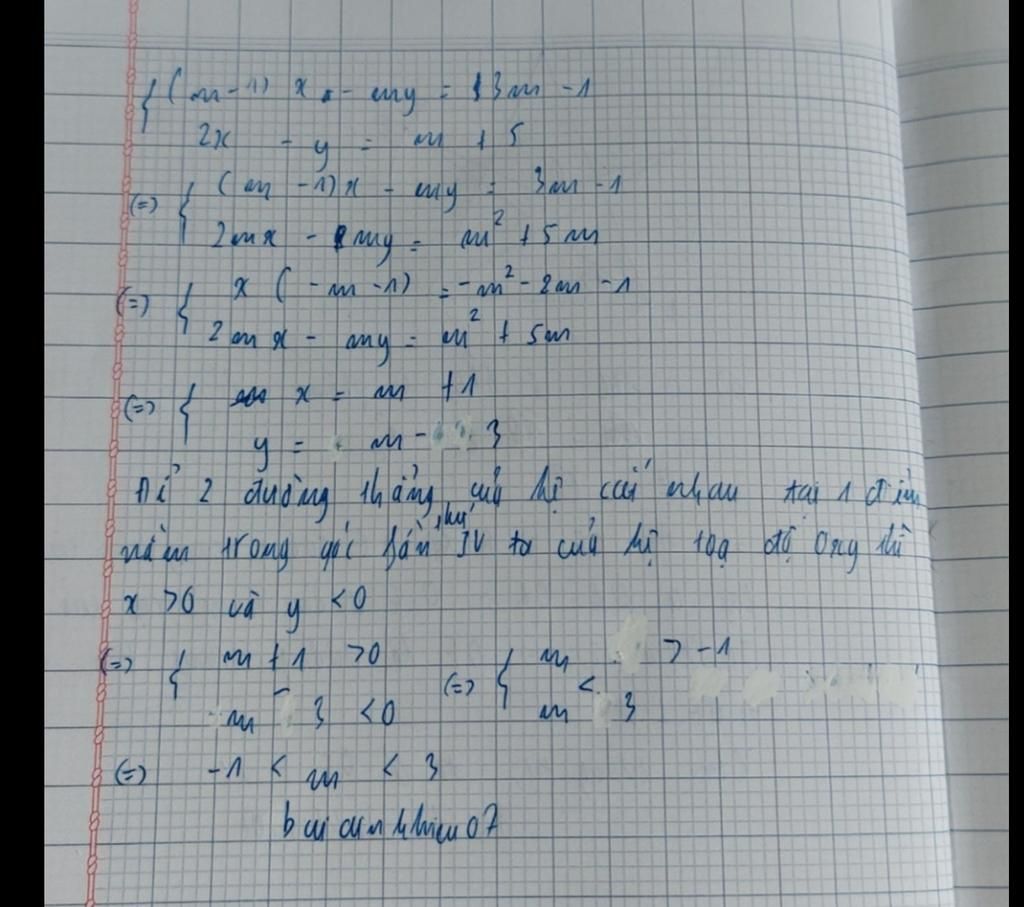 { (m-1) x - my = 3m - 1
2x - y = m + 5
(=) { (m - 1)x - my = 3m - 1
2mx - my = m² + 5m
(=) { x (-m -1) = -m² - 2m - 1
2mx - my = m² + 5m
(=) { x = m + 1
y = m - 3
Để 2 đường thẳng của hệ cắt nhau tại 1 điểm
nằm trong góc phần thứ IV của hệ toạ độ Oxy thì
x > 0 và y < 0
(=) { m + 1 > 0 (=) { m > -1
m - 3 < 0 m < 3
(=) -1 < m < 3